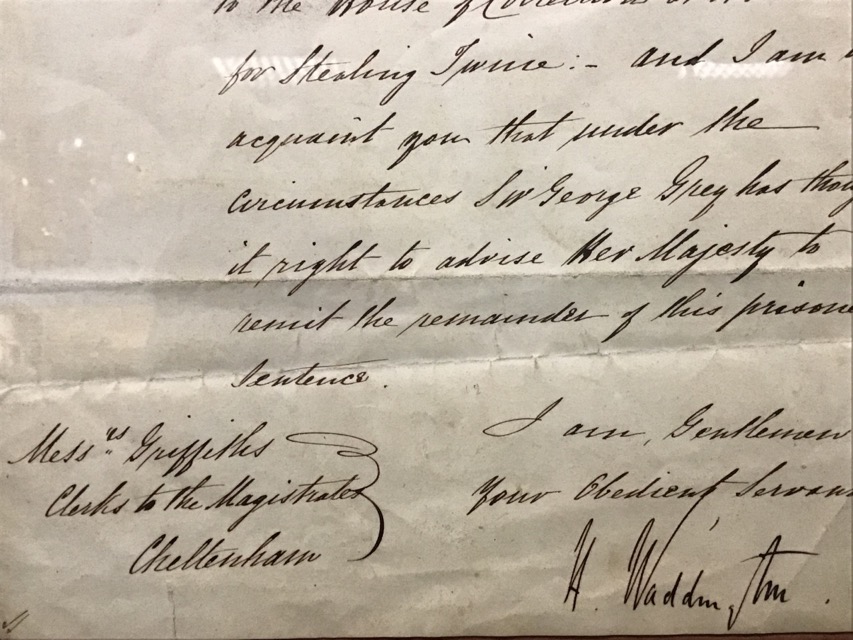 to the House of Correction
for Stealing Twine:- and I am
acquaint you that under the
circumstances Sir George Grey has
it right to advise Her Majesty to
remit the remainder of this
Sentence.
I am, Gentlemen
Your Obedient
H. Waddington.
Messrs Griffiths
Clerks to the Magistrates
Cheltenham